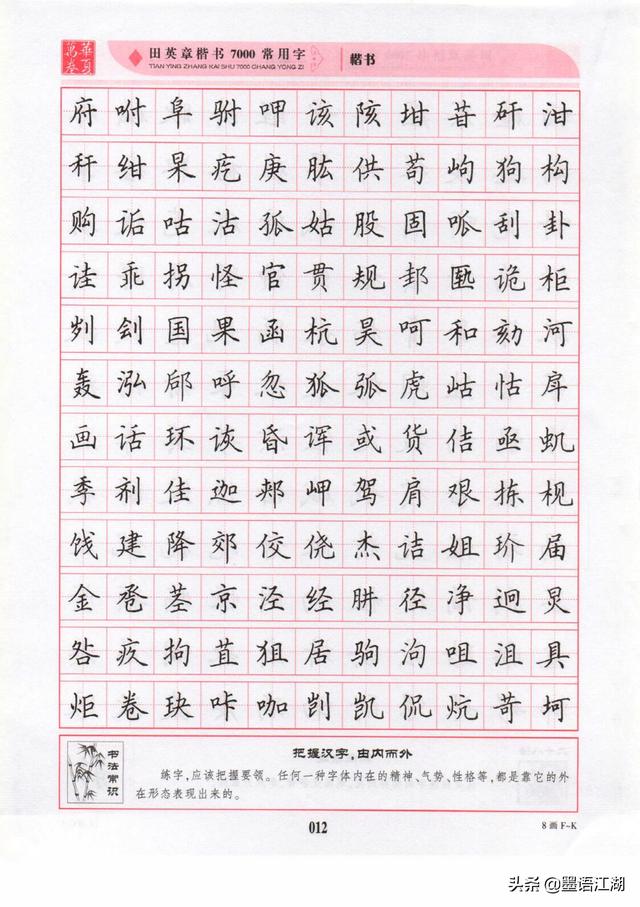 華夏
萬卷
田英章楷书7000常用字
TIAN YING ZHANG KAI SHU 7000 CHANG YONG ZI
楷书
府咐阜驸呷该陔坩苷矸泔
秆绀杲疙庚肱供苟岣狗构
购诟咕沽孤姑股固呱刮卦
诖乖拐怪官贯规邽匦诡柜
刿刽国果函杭昊呵和劾河
轰泓郈呼忽狐弧虎岵怙戽
画话环诙昏诨或货佶亟虮
季剂佳迦郏岬驾肩艰拣枧
饯建降郊佼侥杰诘姐玠届
金卺茎京泾经肼径净迥炅
咎疚拘苴狙居驹泃咀沮具
炬卷玦咔咖剀凯侃炕苛坷
书法常识
把握汉字,由内而外
练字,应该把握要领。任何一种字体内在的精神、气势、性格等,都是靠它的外
在形态表现出来的。
012
8画F~K
头条@墨语江湖